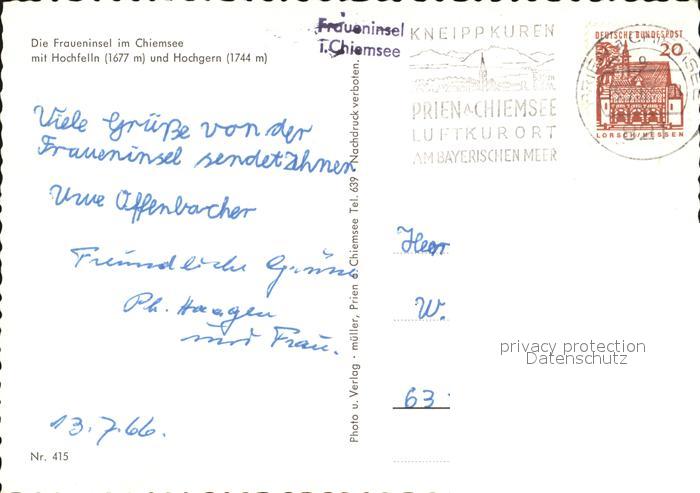 Die Fraueninsel im Chiemsee
mit Hochfelln (1677 m) und Hochgern (1744 m)
Fraueninsel
i. Chiemsee
KNEIPPKUREN
PRIEN A. CHIEMSEE
LUFTKURORT
AM BAYERISCHEN MEER
DEUTSCHE BUNDESPOST
20
LORSCH/HESSEN
Viele Grüße von der
Fraueninsel sendet Ihnen
Uwe Offenbacher
Freundliche Grüsse
Ph. Haagen
und Frau.
13.7.66.
Nr. 415
Photo u. Verlag · müller, Prien a. Chiemsee Tel. 639 · Nachdruck verboten.
Herr
W.
63
privacy protection
Datenschutz